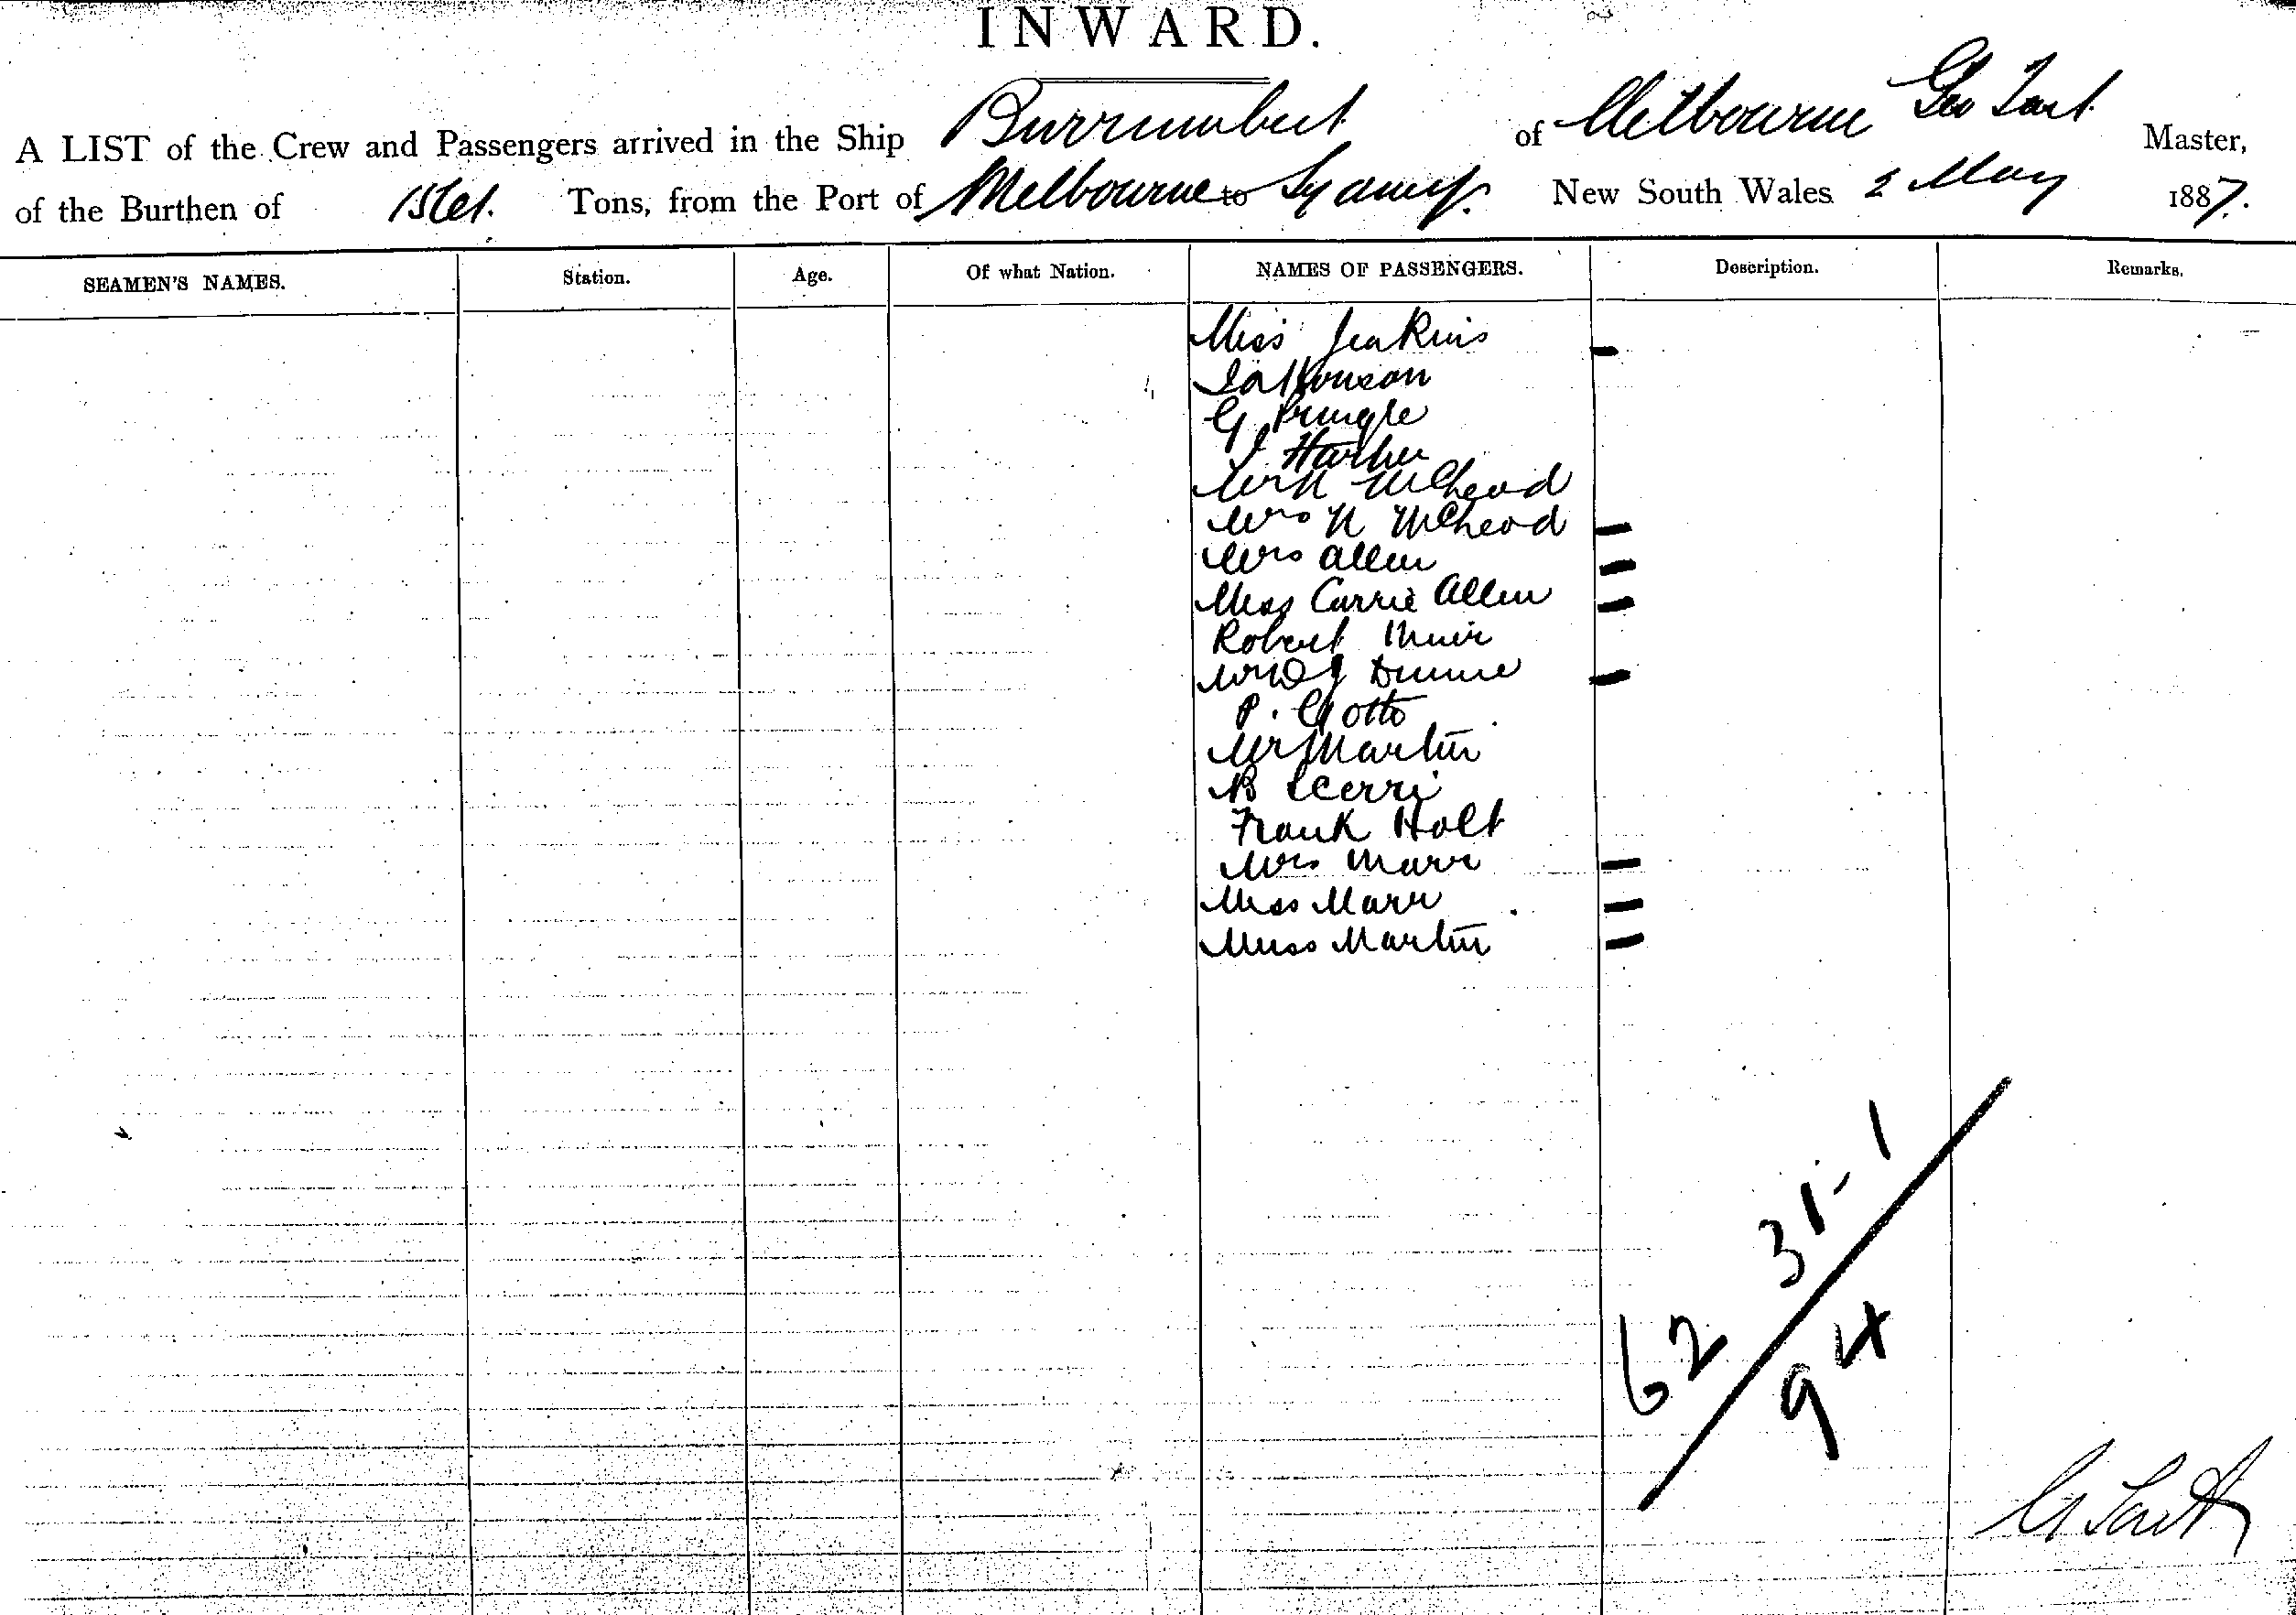 INWARD.
A LIST of the Crew and Passengers arrived in the Ship Burrumbeet of Melbourne Geo Tait Master,
of the Burthen of Tons, from the Port of Melbourne to Sydney. New South Wales 2 May 1887.
SEAMEN'S NAMES. Station. Age. Of what Nation. NAMES OF PASSENGERS. Description. Remarks.
Miss Jenkins
G Pringle
J Harber
Mr N McLeod
Mrs N McLeod
Mrs Allen
Miss Carrie Allen
Robert Muir
Dunne
P. Gotto
Mr Martin
B
Frank Holt
Mrs Marr
Miss Marr
Miss Martin
31-1
62
94
G Tait